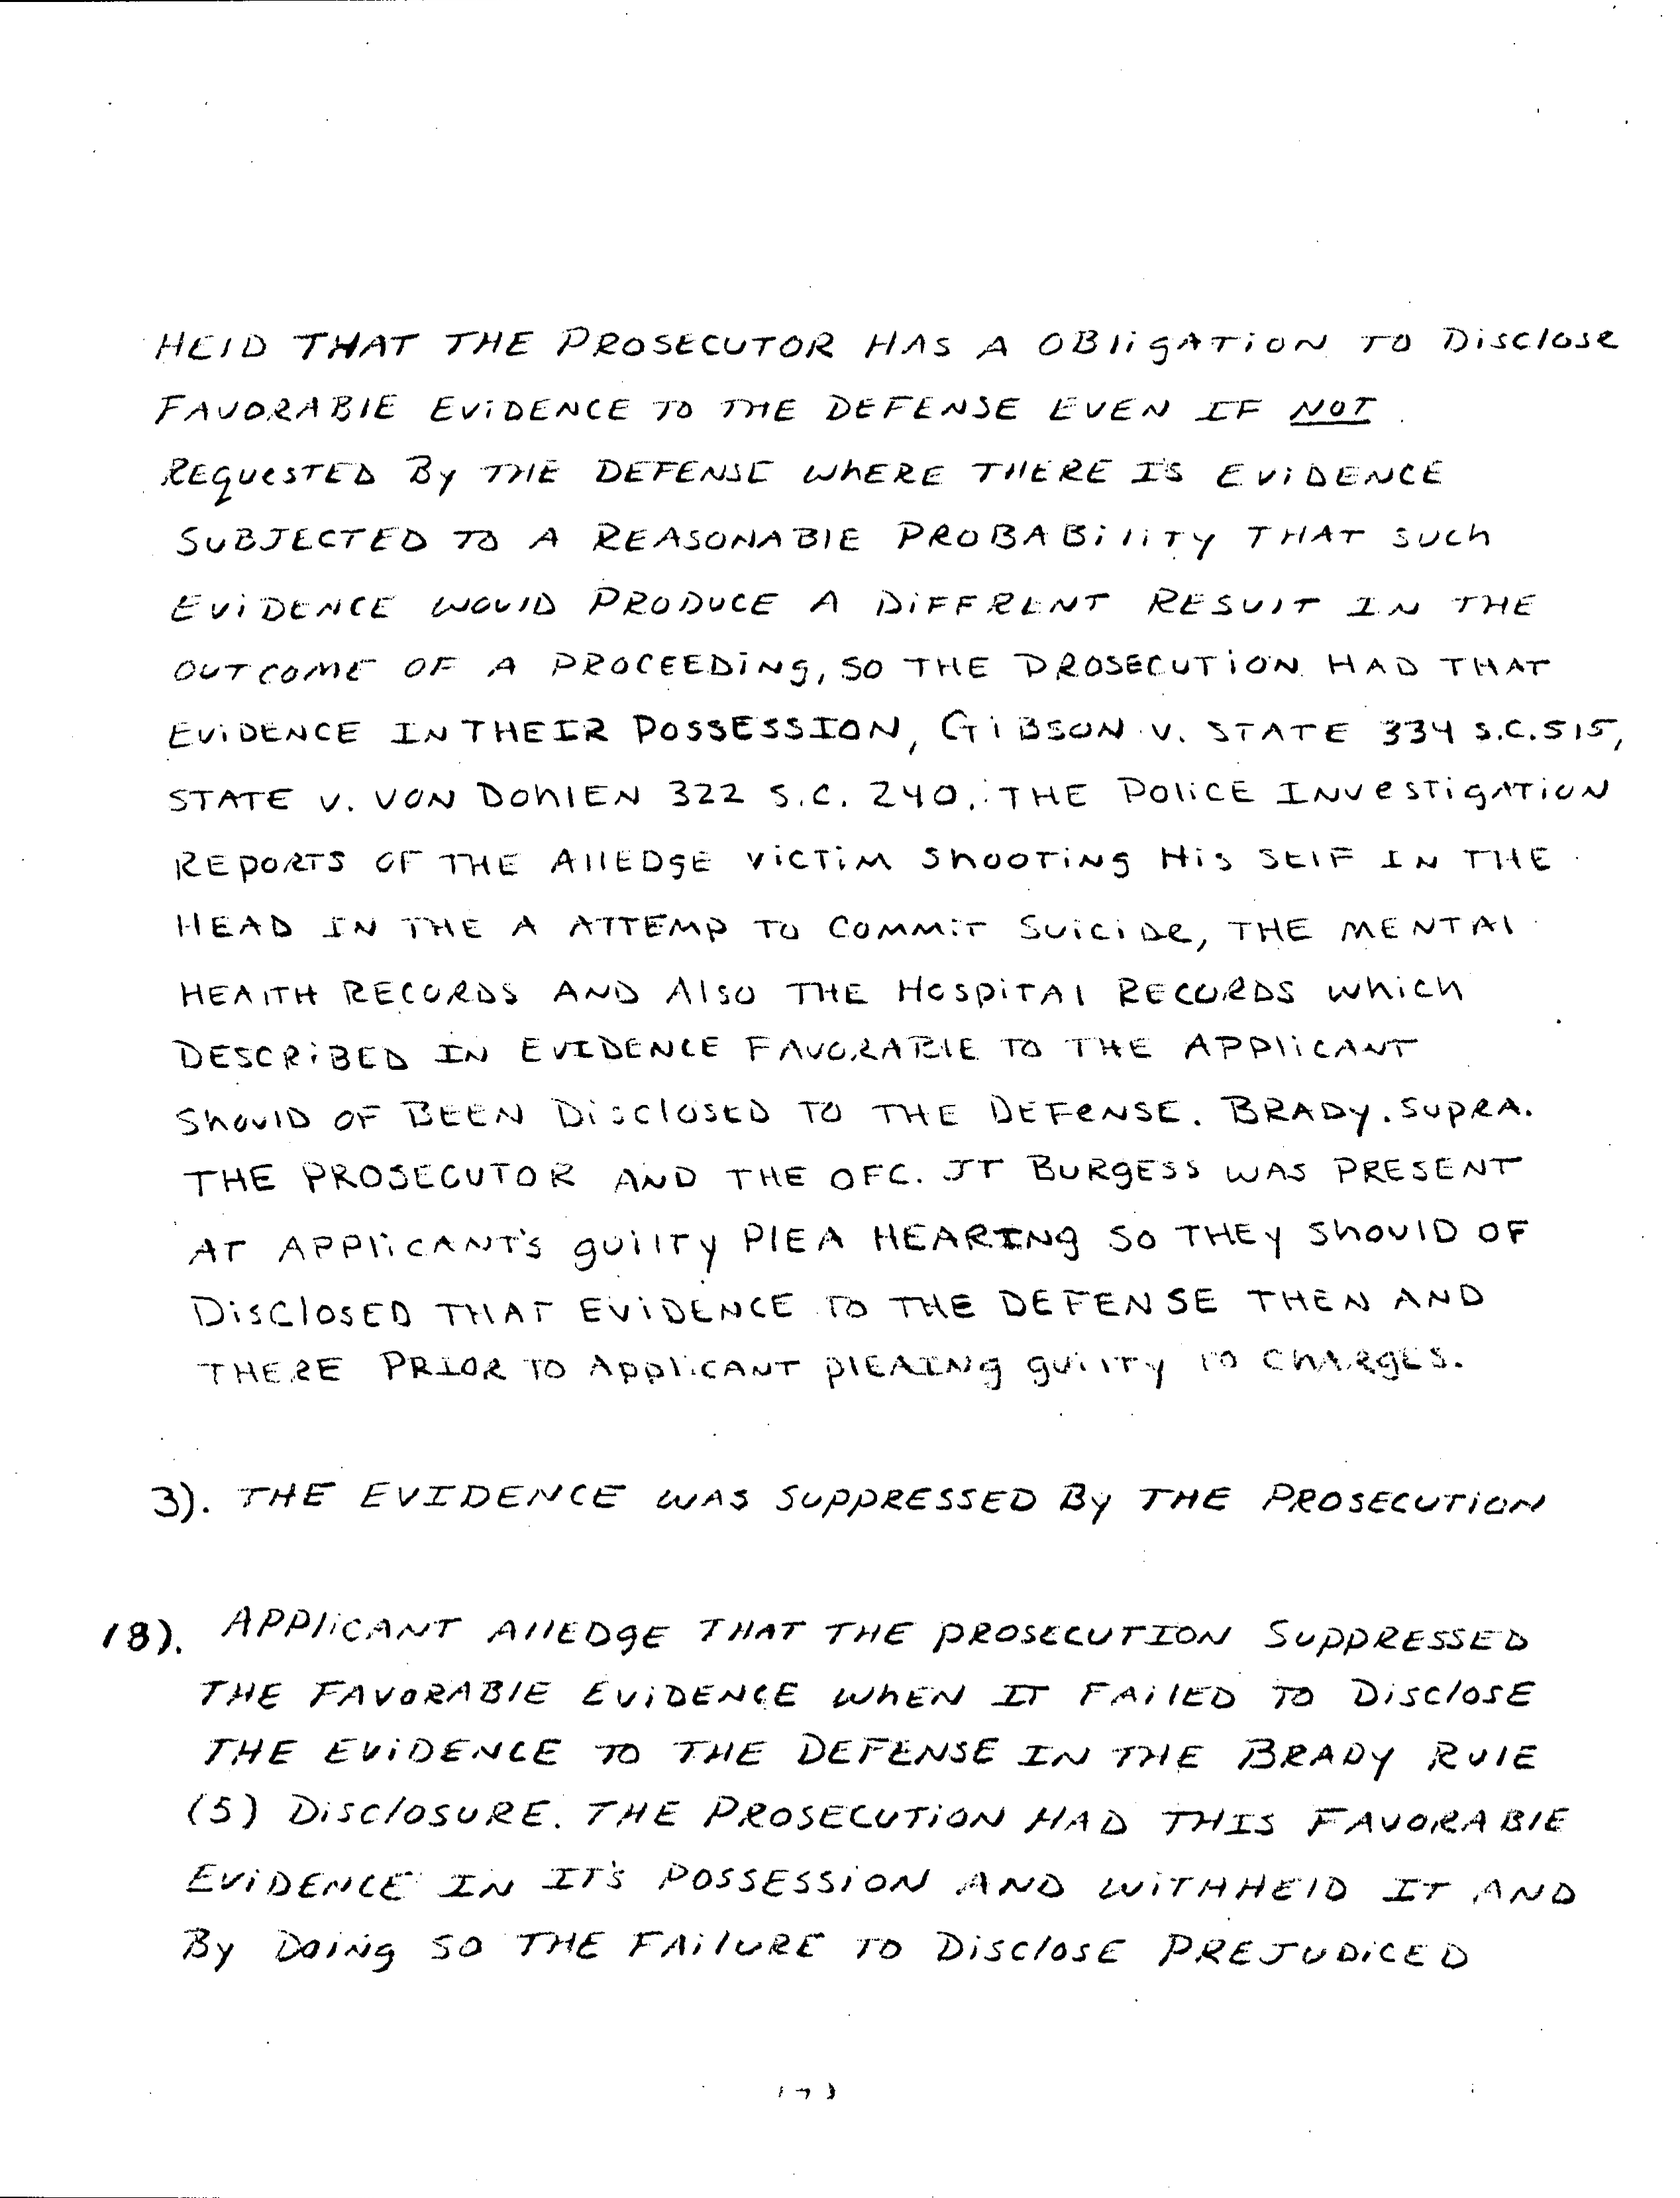 HELD THAT THE PROSECUTOR HAS A OBligATiON TO Disclose
FAVORABlE EViDENCE TO THE DEFENSE EVEN IF NOT
REquesTED By THE DEFENSE WhERE THERE IS EViDENCE
SUBJECTED TO A REASONABlE PROBABility THAT such
EViDENCE WOUlD PRODUCE A DiFFRENT RESUlT IN THE
OUTCOME OF A PROCEEDiNg, SO THE PROSECUTiON HAD THAT
EViDENCE IN THEIR POSSESSION, GiBSON V. STATE 334 S.C. 515,
STATE V. VON DOhlEN 322 S.C. 240. THE PoliCE INvestigATiON
REPORTS OF THE AllEDgE VicTiM ShooTiNg His SElF IN THE
HEAD IN THE A ATTEMP TO COMMiT SuiciDe, THE MENTAl
HEAlTH RECORDS AND Also THE HospiTAl RECORDS which
DESCRiBED IN EVIDENCE FAVORABlE TO THE APPliCANT
ShoulD OF BEEN DisclosED TO THE DEFENSE. BRADy. SupRA.
THE PROSECUTOR AND THE OFC. JT BURgESS WAS PRESENT
AT APPliCANT'S guilTy PlEA HEARINg SO THEy ShoulD OF
DisClosED THAT EViDENCE TO THE DEFENSE THEN AND
THERE PRIOR TO AppliCANT plEAINg guilTy TO ChARgES.
3). THE EVIDENCE WAS SUPPRESSED By THE PROSECUTiON
18). APPliCANT AllEDgE THAT THE PROSECUTION SUPPRESSED
THE FAVORABlE EViDENCE WhEN IT FAilED TO DisclosE
THE EViDENCE TO THE DEFENSE IN THE BRADy RUlE
(5) DisclosURE. THE PROSECUTiON HAD THIS FAVORABlE
EViDENCE IN IT'S POSSESSiON AND WiTHHElD IT AND
By DoiNg SO THE FAilURE TO DisclosE PREJUDiCED